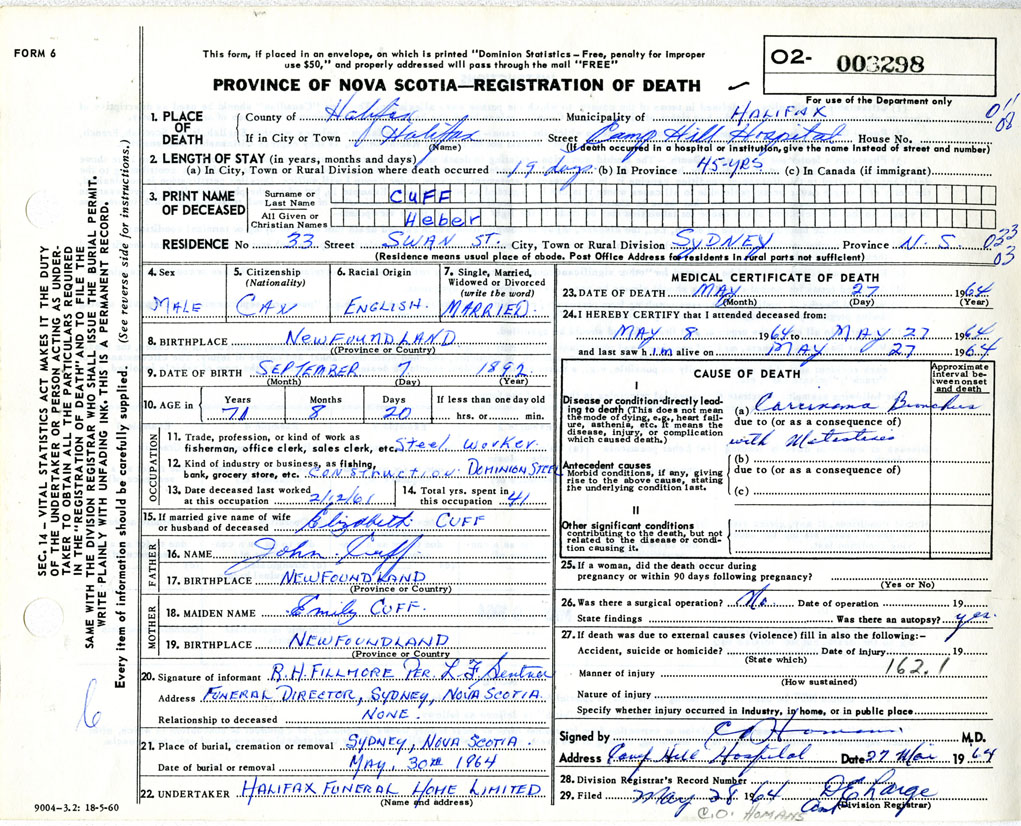 FORM 6
This form, if placed in an envelope, on which is printed "Dominion Statistics – Free, penalty for improper
use $50," and properly addressed will pass through the mail "FREE"
PROVINCE OF NOVA SCOTIA—REGISTRATION OF DEATH
O2- 003298
For use of the Department only
SEC. 14 – VITAL STATISTICS ACT MAKES IT THE DUTY
OF THE UNDERTAKER OR PERSON ACTING AS UNDER-
TAKER TO OBTAIN ALL THE PARTICULARS REQUIRED
IN THE "REGISTRATION OF DEATH" AND TO FILE THE
SAME WITH THE DIVISION REGISTRAR WHO SHALL ISSUE THE BURIAL PERMIT.
WRITE PLAINLY WITH UNFADING INK. THIS IS A PERMANENT RECORD.
Every item of information should be carefully supplied. (See reverse side for instructions.)
1. PLACE OF DEATH
County of Halifax Municipality of HALIFAX
If in City or Town Halifax Street Camp Hill Hospital House No.
(Name) (If death occurred in a hospital or institution, give the name instead of street and number)
2. LENGTH OF STAY (in years, months and days)
(a) In City, Town or Rural Division where death occurred 19 days (b) In Province 45-YRS (c) In Canada (if immigrant)
3. PRINT NAME OF DECEASED
Surname or Last Name CUFF
All Given or Christian Names Heber
RESIDENCE No 33 Street SWAN ST. City, Town or Rural Division SYDNEY Province N.S. 0333
(Residence means usual place of abode. Post Office Address for residents in rural parts not sufficient) 03
4. Sex MALE
5. Citizenship (Nationality) CAN
6. Racial Origin ENGLISH.
7. Single, Married, Widowed or Divorced (write the word) MARRIED.
8. BIRTHPLACE NEWFOUNDLAND
(Province or Country)
9. DATE OF BIRTH SEPTEMBER 7 1892
(Month) (Day) (Year)
10. AGE in Years 71 Months 8 Days 20 If less than one day old hrs. or min.
OCCUPATION
11. Trade, profession, or kind of work as
fisherman, office clerk, sales clerk, etc. Steel Worker.
12. Kind of industry or business, as fishing,
bank, grocery store, etc. CONSTRUCTION. DOMINION STEEL
13. Date deceased last worked at this occupation 2/12/61
14. Total yrs. spent in this occupation 41
15. If married give name of wife or husband of deceased Elizabeth CUFF
FATHER
16. NAME John Cuff
17. BIRTHPLACE NEWFOUNDLAND
(Province or Country)
MOTHER
18. MAIDEN NAME Emily CUFF.
19. BIRTHPLACE NEWFOUNDLAND
(Province or Country
20. Signature of informant R.H. FILLMORE PER. L.F. Sentner
Address FUNERAL DIRECTOR, SYDNEY, NOVA SCOTIA.
Relationship to deceased NONE.
21. Place of burial, cremation or removal SYDNEY, NOVA SCOTIA.
Date of burial or removal MAY, 30TH 1964
22. UNDERTAKER HALIFAX FUNERAL HOME LIMITED
(Name and address)
MEDICAL CERTIFICATE OF DEATH
23. DATE OF DEATH MAY 27 1964
(Month) (Day) (Year)
24. I HEREBY CERTIFY that I attended deceased from:
MAY 8 1964 to MAY 27 1964
and last saw him alive on MAY 27 1964
CAUSE OF DEATH
Approximate interval be-tween onset and death
I
Disease or condition directly lead-
ing to death (This does not mean
the mode of dying, e.g., heart fail-
ure, asthenia, etc. It means the
disease, injury, or complication
which caused death.)
(a) Carcinoma Bronchus
due to (or as a consequence of)
with Metastases
Antecedent causes
Morbid conditions, if any, giving
rise to the above cause, stating
the underlying condition last.
(b)
due to (or as a consequence of)
(c)
II
Other significant conditions
contributing to the death, but not
related to the disease or condi-
tion causing it.
25. If a woman, did the death occur during
pregnancy or within 90 days following pregnancy?
(Yes or No)
26. Was there a surgical operation? No Date of operation 19
State findings Was there an autopsy? yes
27. If death was due to external causes (violence) fill in also the following:–
Accident, suicide or homicide? Date of injury 19
(State which)
Manner of injury 162.1
(How sustained)
Nature of injury
Specify whether injury occurred in industry, in home, or in public place
Signed by C O Homans M.D.
Address Camp Hill Hospital Date 27 Mai 1964
28. Division Registrar's Record Number
29. Filed May 28 1964
(Division Registrar)
C.O. HOMANS
6
9004–3.2: 18-5-60